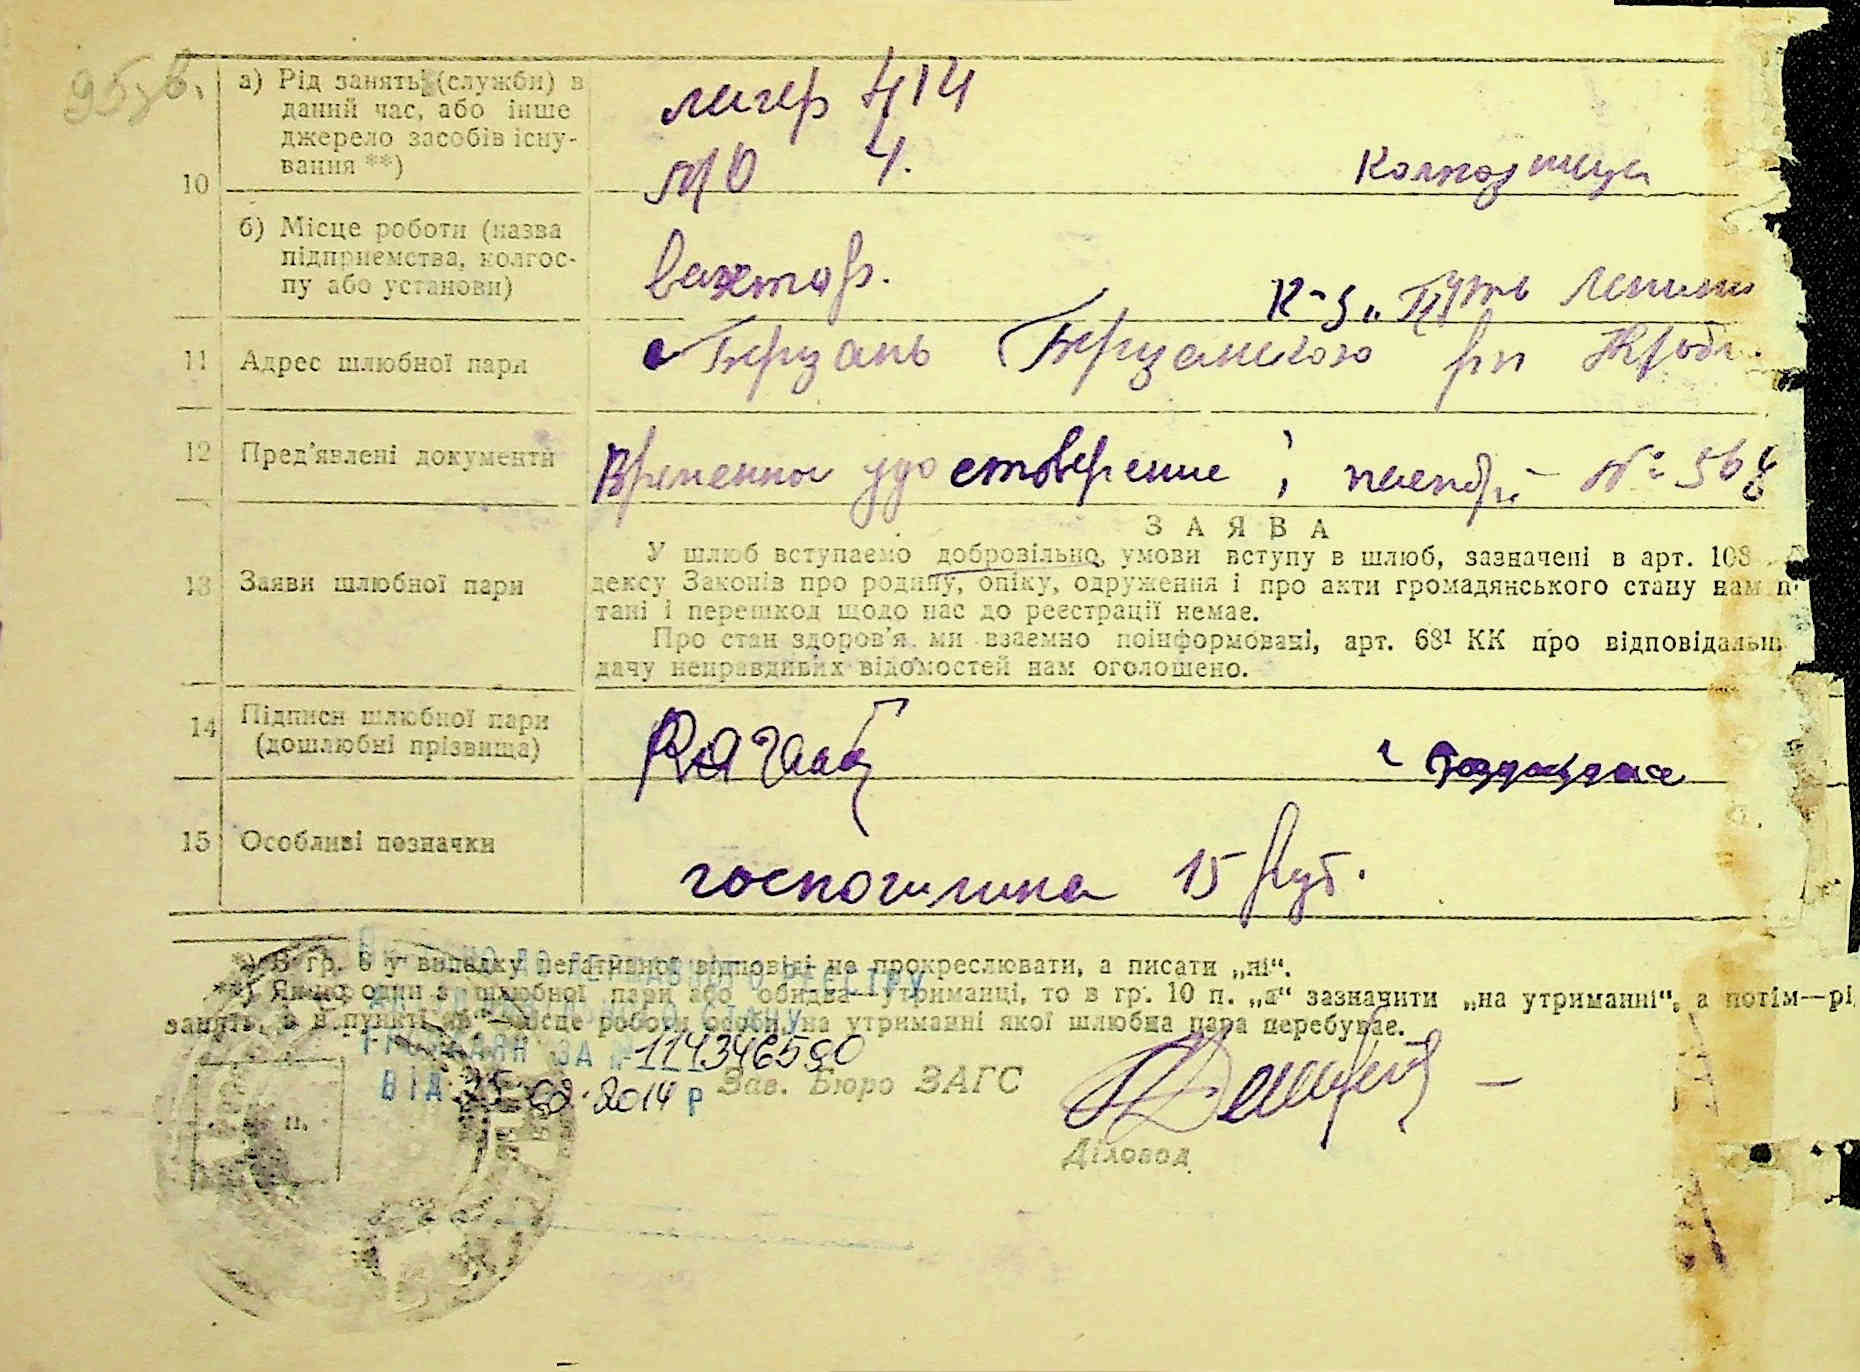 95зв.
10
а) Рід занять (служби) в
даний час, або інше
джерело засобів існу-
вання **)
лагер 414
МО 4.
б) Місце роботи (назва
підприємства, колгос-
пу або установи)
вахтор.
к-з „Путь Ленина
11 Адрес шлюбної пари
12 Пред'явлені документи
удостоверение і паспорт № 568
13 Заяви шлюбної пари
ЗАЯВА
У шлюб вступаємо добровільно, умови вступу в шлюб, зазначені в арт. 108
дексу Законів про родину, опіку, одруження і про акти громадянського стану нам п
тані і перешкод щодо нас до реєстрації немає.
Про стан здоров'я ми взаємно поінформовані, арт. 68¹ КК про відповідальн
дачу неправдивих відомостей нам оголошено.
14 Підписи шлюбної пари
(дошлюбні прізвища)
15 Особливі позначки
госпошлина 15 руб.
*) В гр. 6 у випадку негативної відповіді не прокреслювати, а писати „ні“.
**) Якщо один з шлюбної пари або обидва—утриманці, то в гр. 10 п. „а“ зазначити „на утриманні“, а потім—рі
занять, а в пункті „б“—місце роботи особи, на утриманні якої шлюбна пара перебуває.
РЕЄСТРУ
ГРОМАДЯН ЗА № 114346590
ВІД 25 02 2014 Р
Зав. Бюро ЗАГС
Діловод
п.